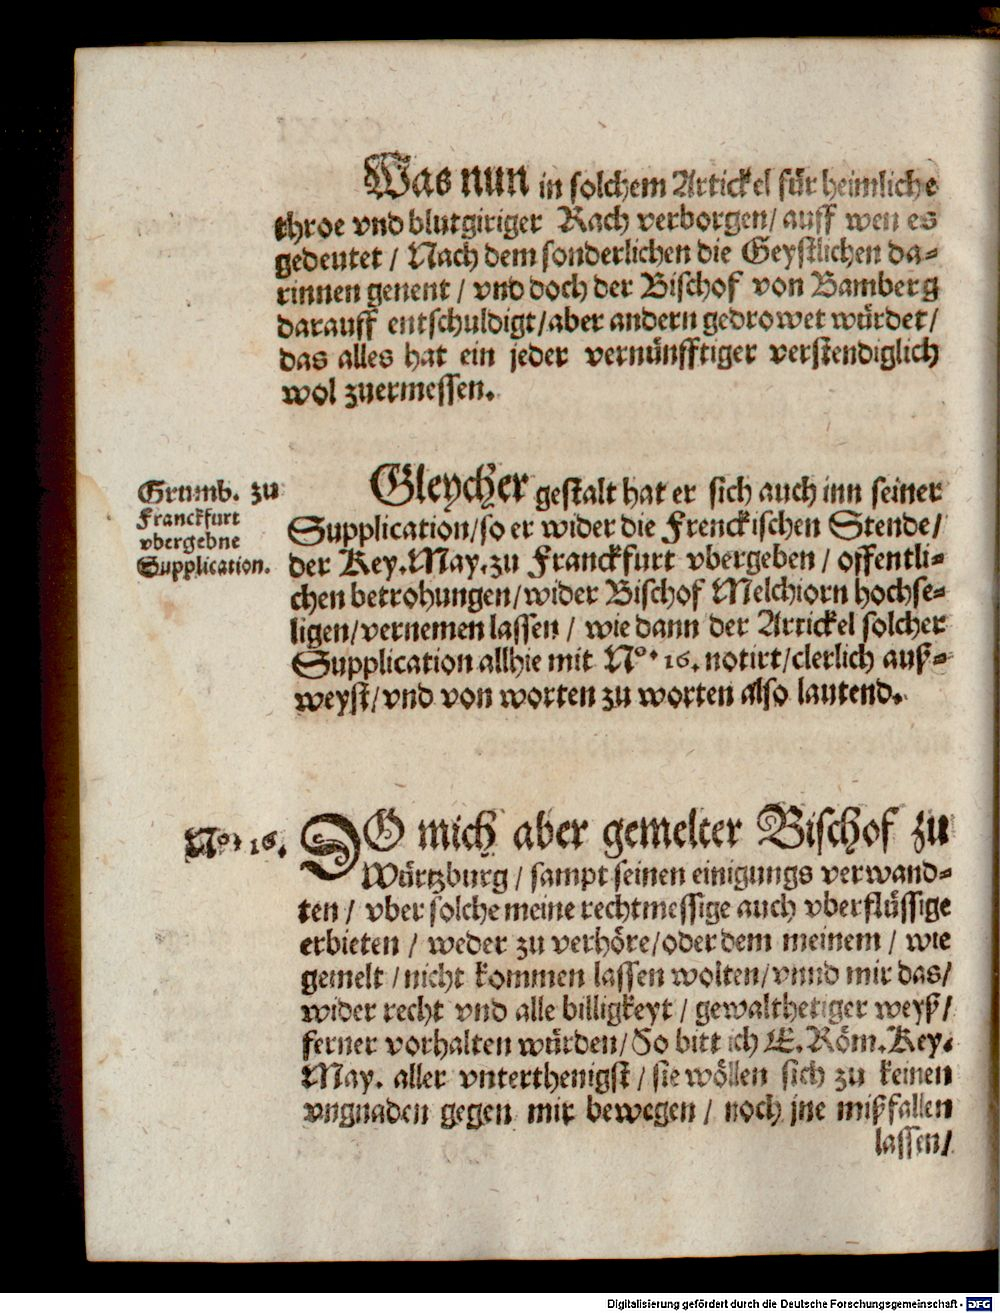 Was nun in solchem Artickel für heimliche
throe vnd blutgiriger Rach verborgen/ auff wen es
gedeutet / Nach dem sonderlichen die Geystlichen da-
rinnen genent / vnd doch der Bischof von Bamberg
darauff entschuldigt/ aber andern gedrowet würdet/
das alles hat ein jeder vernünfftiger verstendiglich
wol zuermessen.
Grumb. zu
Franckfurt
vbergebne
Supplication.
Gleycher gestalt hat er sich auch inn seiner
Supplication/ so er wider die Frenckischen Stende/
der Key. May. zu Franckfurt vbergeben / offentli-
chen betrohungen/ wider Bischof Melchiorn hochse-
ligen/ vernemen lassen / wie dann der Artickel solcher
Supplication allhie mit No. 16. notirt/ clerlich auß-
weyst/ vnd von worten zu worten also lautend.
No. 16.
DO mich aber gemelter Bischof zu
Würtzburg / sampt seinen einigungs verwand-
ten / vber solche meine rechtmessige auch vberflüssige
erbieten / weder zu verhöre/ oder dem meinem / wie
gemelt / nicht kommen lassen wolten/ vnnd mir das/
wider recht vnd alle billigkeyt / gewalthetiger weyß/
ferner vorhalten würden/ So bitt ich E. Röm. Key.
May. aller vnterthenigst / sie wöllen sich zu keinen
vngnaden gegen mir bewegen / noch jne mißfallen
lassen/
Digitalisierung gefördert durch die Deutsche Forschungsgemeinschaft - DFG